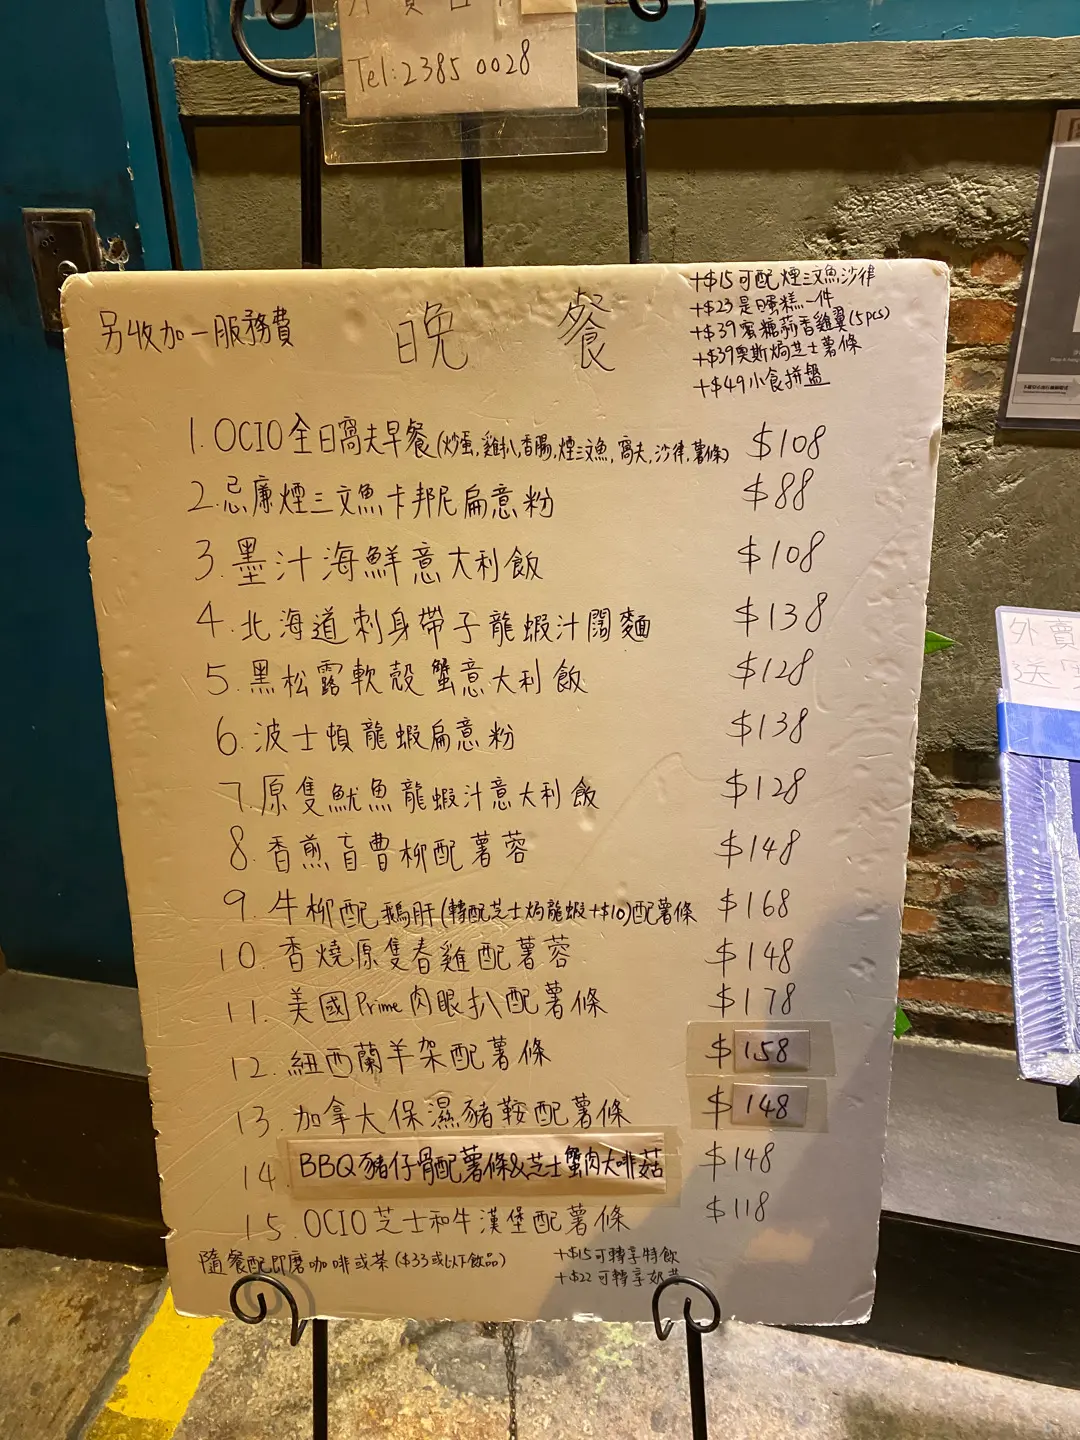 Tel:2385 0028
另收加一服務費
晚 餐
+$15可配煙三文魚沙律
+$23是日蛋糕一件
+$39蜜糖蒜香雞翼(5pcs)
+$39奧斯焗芝士薯條
+$49小食拼盤
1.OCIO全日窩夫早餐(炒蛋,雞扒,香腸,煙三文魚,窩夫,沙律,薯條) $108
2.忌廉煙三文魚卡邦尼扁意粉 $88
3.墨汁海鮮意大利飯 $108
4.北海道刺身帶子龍蝦汁闊麵 $138
5.黑松露軟殼蟹意大利飯 $128
6.波士頓龍蝦扁意粉 $138
7.原隻魷魚龍蝦汁意大利飯 $128
8.香煎盲曹柳配薯蓉 $148
9.牛柳配鵝肝(轉配芝士焗龍蝦+$10)配薯條 $168
10.香燒原隻春雞配薯蓉 $148
11.美國Prime肉眼扒配薯條 $178
12.紐西蘭羊架配薯條 $158
13.加拿大保濕豬鞍配薯條 $148
14.BBQ豬仔骨配薯條&芝士蟹肉大啡菇 $148
15.OCIO芝士和牛漢堡配薯條 $118
隨餐配即磨咖啡或茶($33或以下飲品)
+$15可轉享特飲
+$22可轉享奶昔
外賣
送